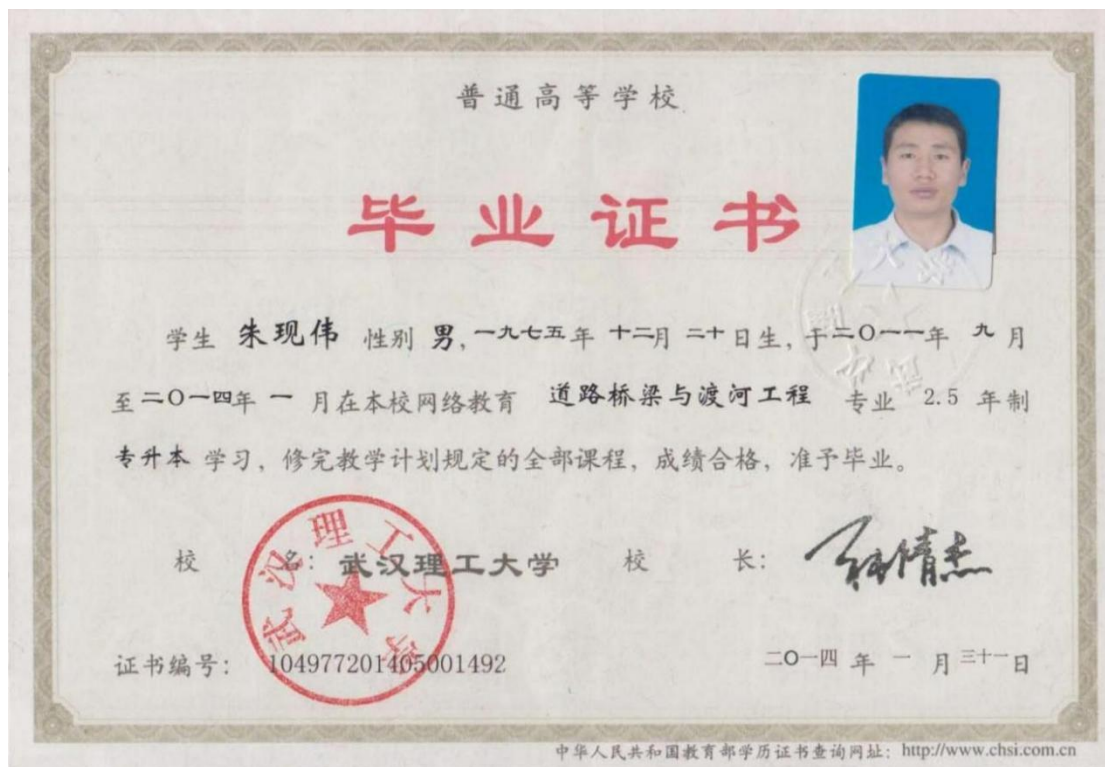 普通高等学校
毕业证书
学生 朱现伟 性别 男，一九七五年 十二月 二十日生，于二〇一一年 九月
至二〇一四年 一 月在本校网络教育 道路桥梁与渡河工程 专业 2.5 年制
专升本 学习，修完教学计划规定的全部课程，成绩合格，准予毕业。
校 名：武汉理工大学 校 长：
武汉理工大学
证书编号： 104977201405001492 二〇一四 年 一 月 三十一日
中华人民共和国教育部学历证书查询网址：http://www.chsi.com.cn